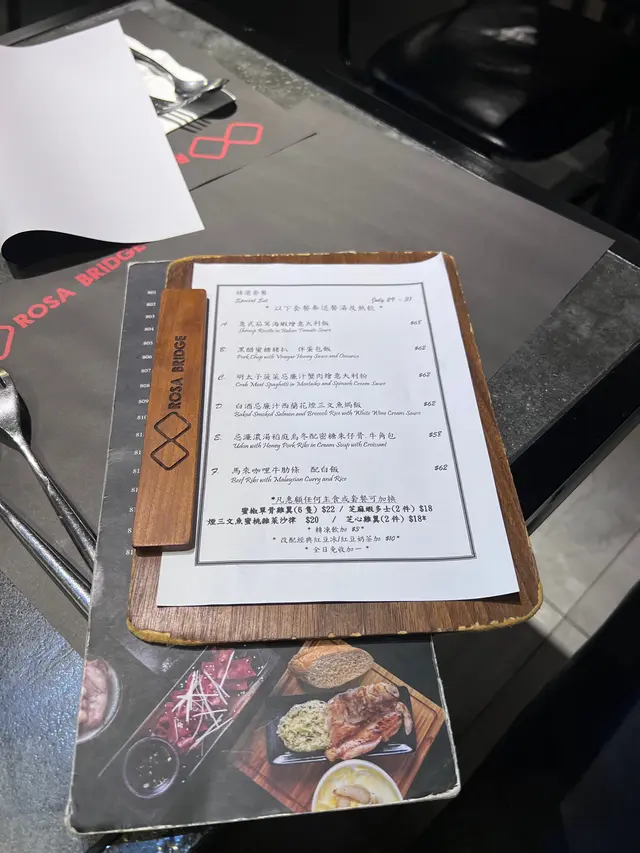 ROSA BRIDGE
ROSA BRIDGE
精選套餐
Special Set
July 29 - 31
* 以下套餐奉送餐湯及熱飲 *
A. 意式茄茸海蝦燴意大利飯 $68
Shrimp Risotto in Italian Tomato Sauce
B. 黑醋蜜糖豬扒 伴蛋包飯 $62
Pork Chop with Vinegar Honey Sauce and Omurice
C. 明太子菠菜忌廉汁蟹肉燴意大利粉 $62
Crab Meat Spaghetti in Mentaiko and Spinach Cream Sauce
D. 白酒忌廉汁西蘭花煙三文魚焗飯 $62
Baked Smoked Salmon and Broccoli Rice with White Wine Cream Sauce
E. 忌濂濃湯稻庭烏冬配蜜糖朱仔骨.牛角包 $58
Udon with Honey Pork Ribs in Cream Soup with Croissant
F. 馬來咖哩牛肋條 配白飯 $62
Beef Ribs with Malaysian Curry and Rice
*凡惠顧任何主食或套餐可加換
蜜椒單骨雞翼(6 隻) $22 / 芝麻蝦多士(2 件) $18
煙三文魚蜜桃雜菜沙律 $20 / 芝心雞翼(2 件) $18*
* 轉凍飲加 $3*
* 改配經典紅豆冰/紅豆奶茶加 $10*
* 全日免收加一 *